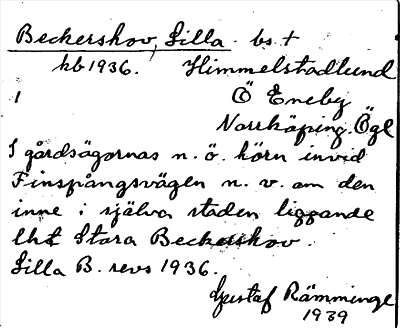 Beckershov, Lilla. bs. t
kb 1936. Himmelstadlund
1 Ö Eneby
Norrköping. Ögl
I gårdsägornas n. ö. hörn invid
Finspångsvägen n. v. om den
inne i själva staden liggande
lht Stora Beckershov.
Lilla B. revs 1936.
Gustaf Rämminge
1939